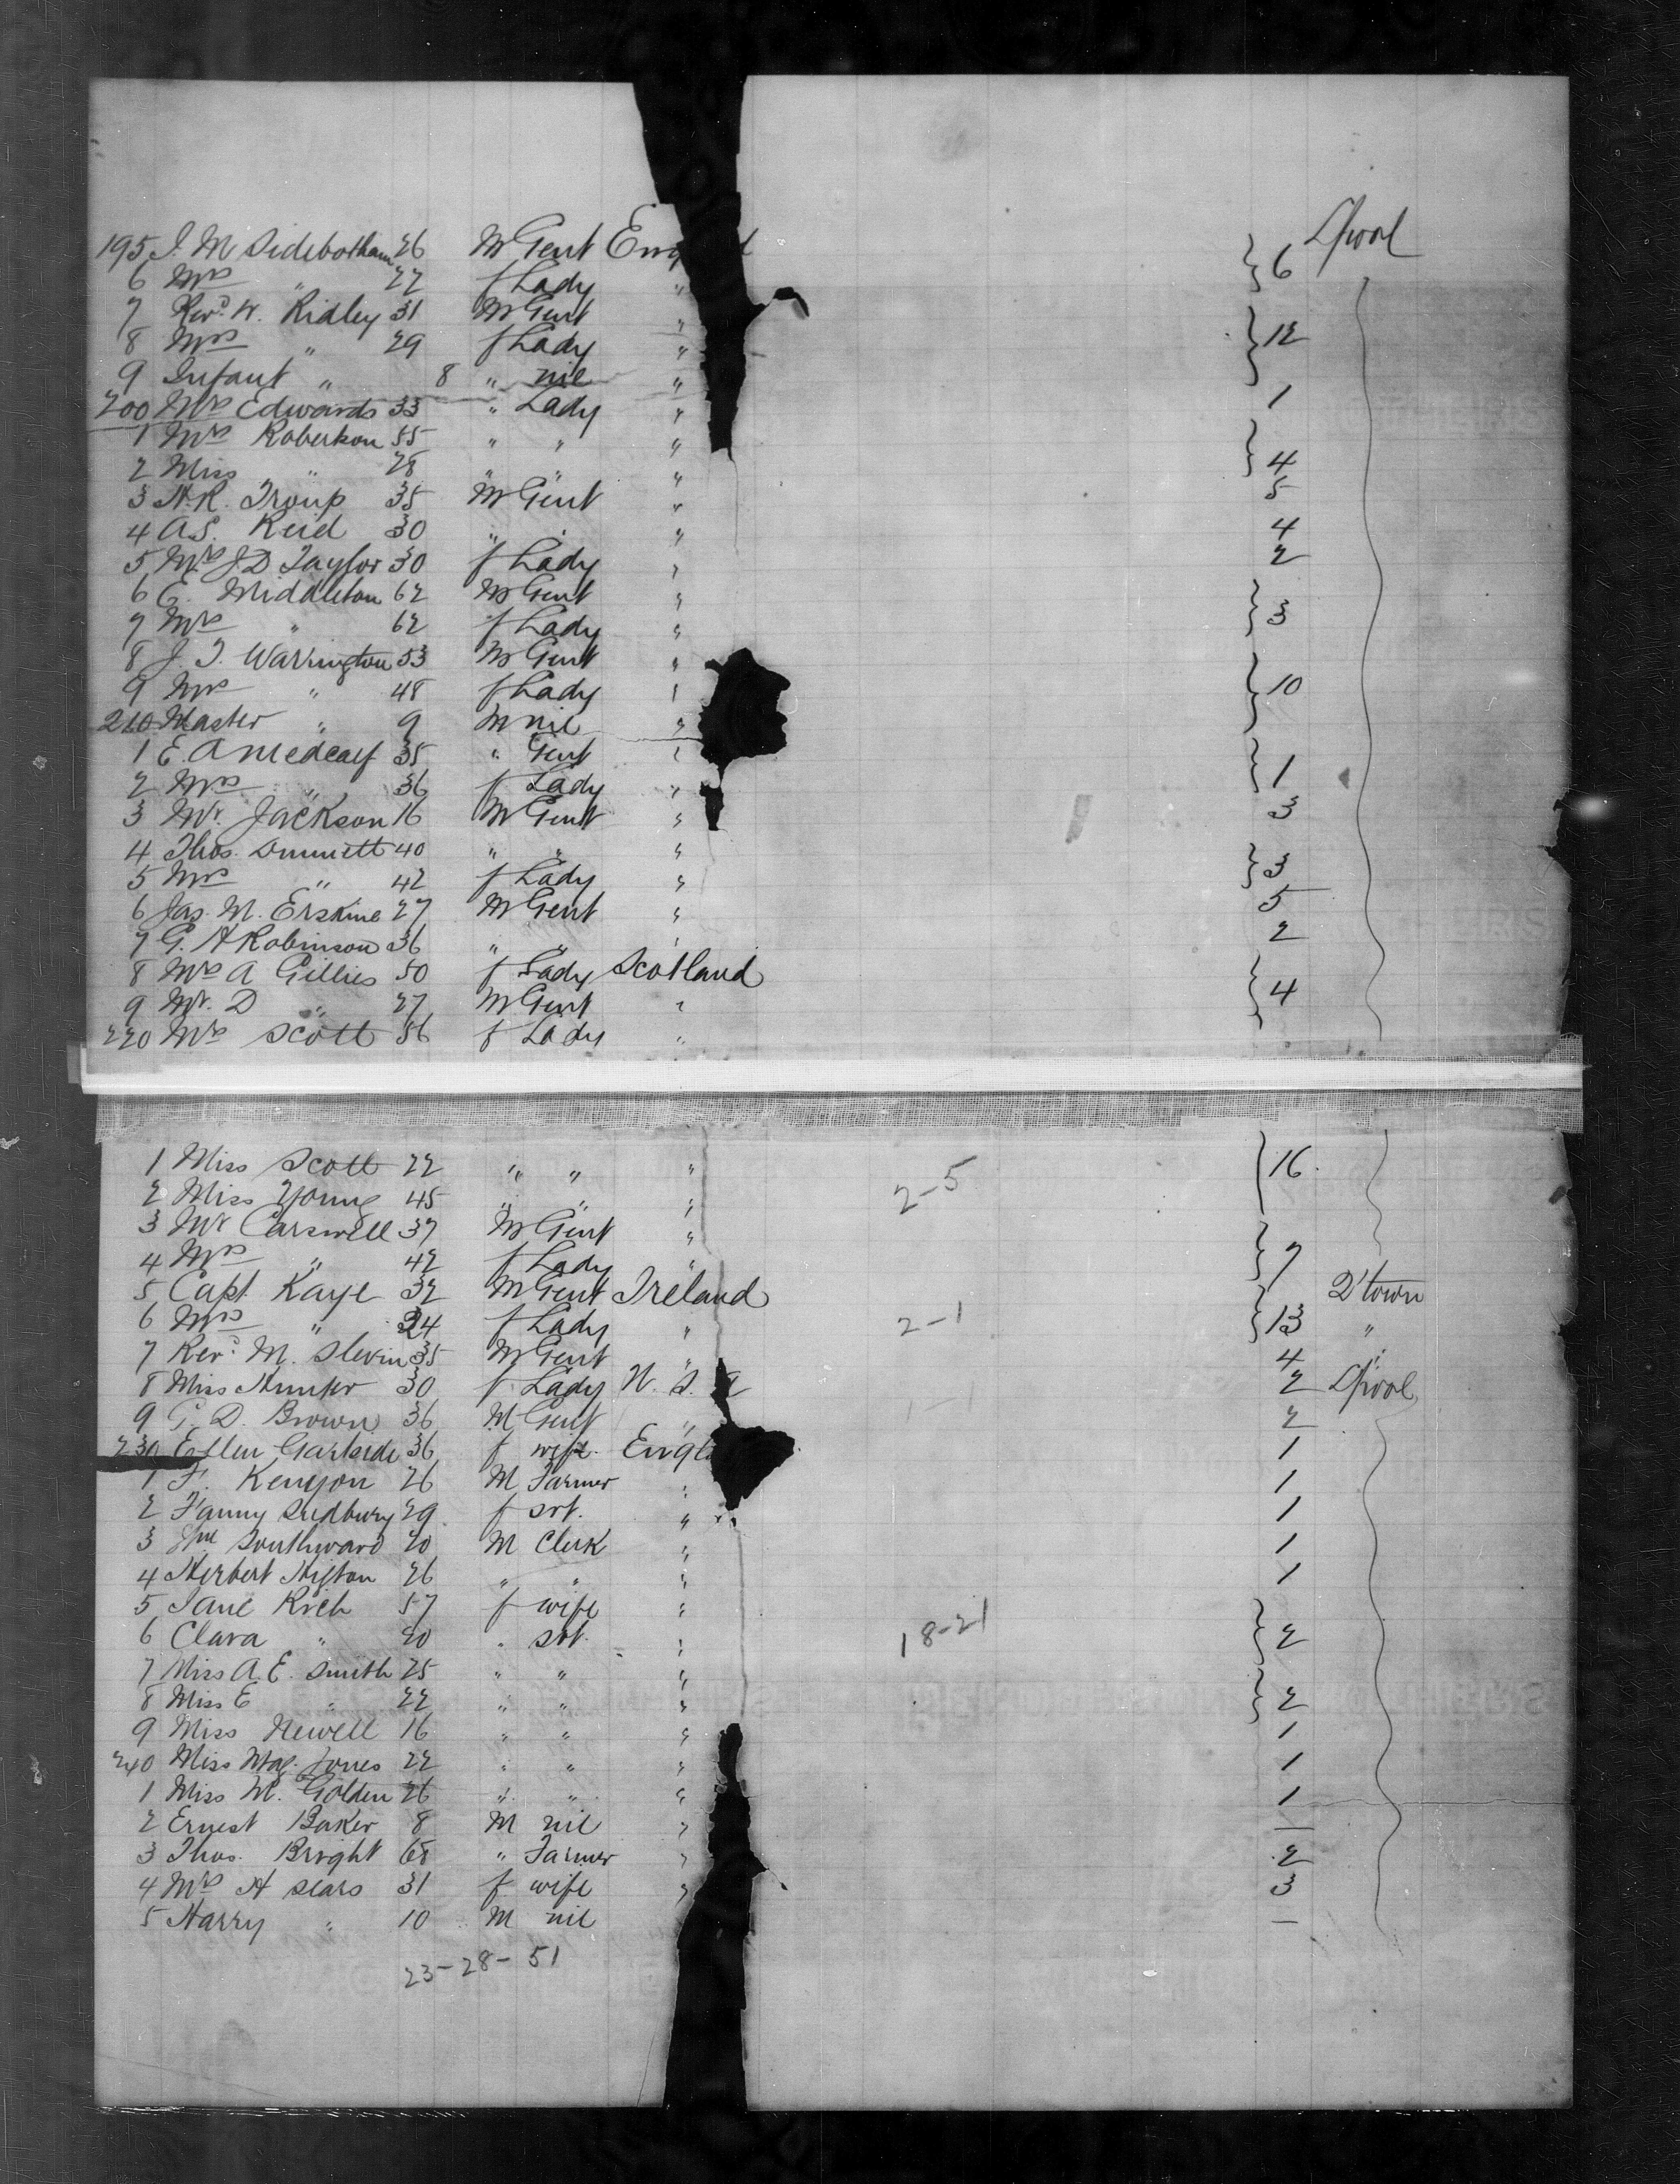 L'pool
195 J. M Sidebotham 26 M Gent Eng d } 6
6 Mrs " 22 f Lady "
7 Revd W. Ridley 31 M Gent " } 12
8 Mrs " 29 f Lady "
9 Infant " 8 " nil "
200 Mrs Edwards 33 " Lady " 1
1 Mrs Robertson 55 " " "
2 Miss " 28 " " " } 4
3 H.R. Troup 35 M Gent " 5
4 A.S. Reid 30 " " " 4
5 Mrs J D Taylor 30 f Lady " 2
6 E. Middleton 62 M Gent " } 3
7 Mrs " 62 f Lady "
8 J. T. Warrington 53 M Gent "
9 Mrs " 48 f Lady " } 10
210 Master " 9 M nil "
1 E. A Medcalf 35 " Gent "
2 Mrs " 36 f Lady " } 1
3 Mr. Jackson 16 M Gent " 3
4 Thos. 40 " " "
5 Mrs " 42 f Lady " } 3
6 Jas. M. Erskine 27 M Gent " 5
7 G. H Robinson 36 " " " 2
8 Mrs A Gillies 50 f Lady Scotland
9 Mr. D " 27 M Gent " } 4
220 Mrs Scott 56 f Lady "
1 Miss Scott 22 " " " } 16
2 Miss Young 45 " " " 2-5
3 Mr Carswell 37 M Gent "
4 Mrs " 42 f Lady " } 7
5 Capt Kaye 32 M Gent Ireland Q'town
6 Mrs " 24 f Lady " 2-1 } 13 "
7 Revd M. Slevin 35 M Gent " 4 "
8 Miss 30 f Lady U. S. A 2 L'pool
9 G. D. Brown 36 M Gent " 1-1 2
230 Ellen Gartside 36 f wife Engla 1
1 F. Kenyon 26 M Farmer " 1
2 Fanny Sudbury 29 f svt. " 1
3 Southward 20 M Clerk " 1
4 Herbert 26 " " " 1
5 Jane Rich 57 f wife "
6 Clara " 20 " svt. " 18-21 } 2
7 Miss A. E. Smith 25 " " "
8 Miss E " 22 " " " } 2
9 Miss Newell 16 " " " 1
240 Miss Mag. Jones 22 " " " 1
1 Miss M. Golden 26 " " " 1
2 Ernest Baker 8 M nil " —
3 Thos. Bright 68 " Farmer " 2
4 Mrs H Sears 31 f wife " 3
5 Harry " 10 M nil —
23-28-51